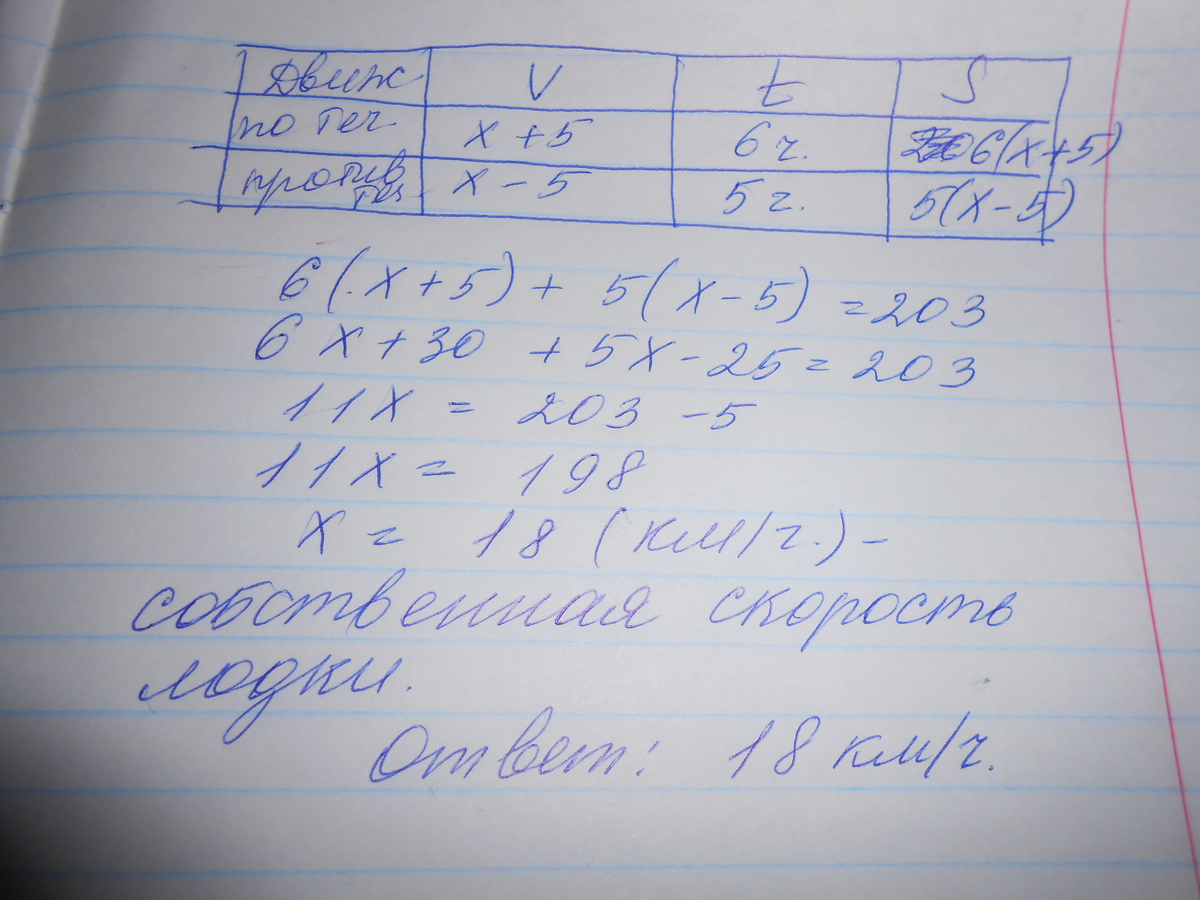 Движ V t S
по теч x + 5 6 ч. 6(x+5)
против теч x - 5 5 ч. 5(x-5)
6(x+5) + 5(x-5) = 203
6x + 30 + 5x - 25 = 203
11x = 203 - 5
11x = 198
x = 18 (км/ч.) -
собственная скорость
лодки.
Ответ: 18 км/ч.